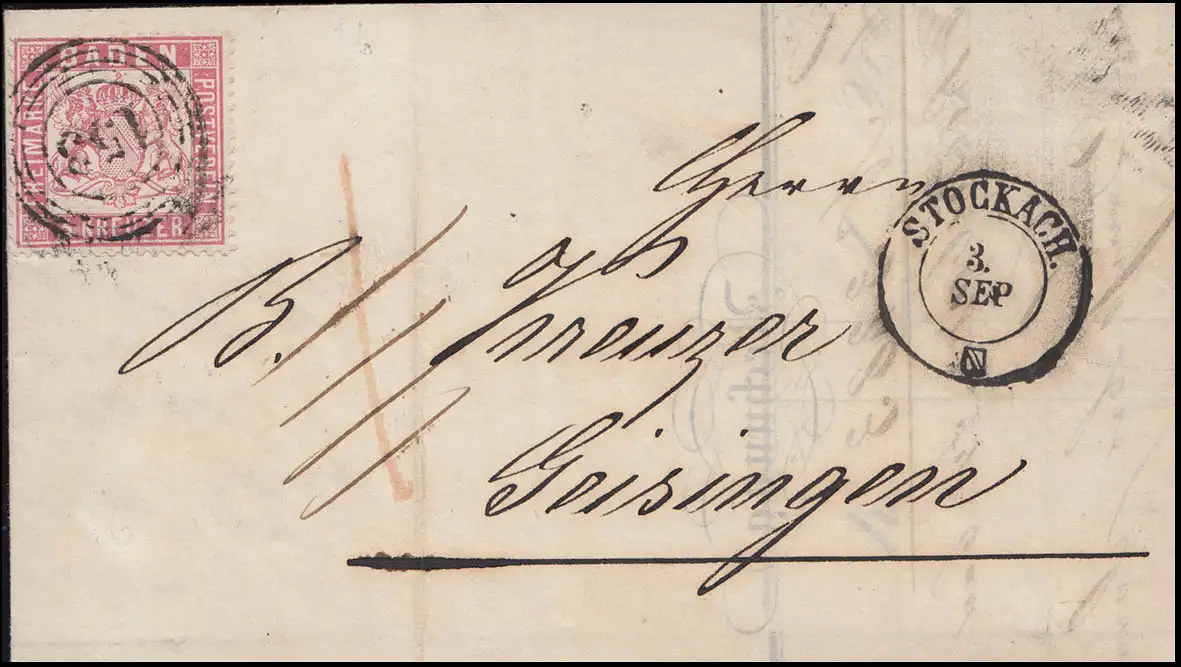 BADEN
FREIMARKE
POSTVEREIN
3 KREUZER.
153
Herrn
B. Kreuzer
Geisingen
STOCKACH.
3.
SEP
N